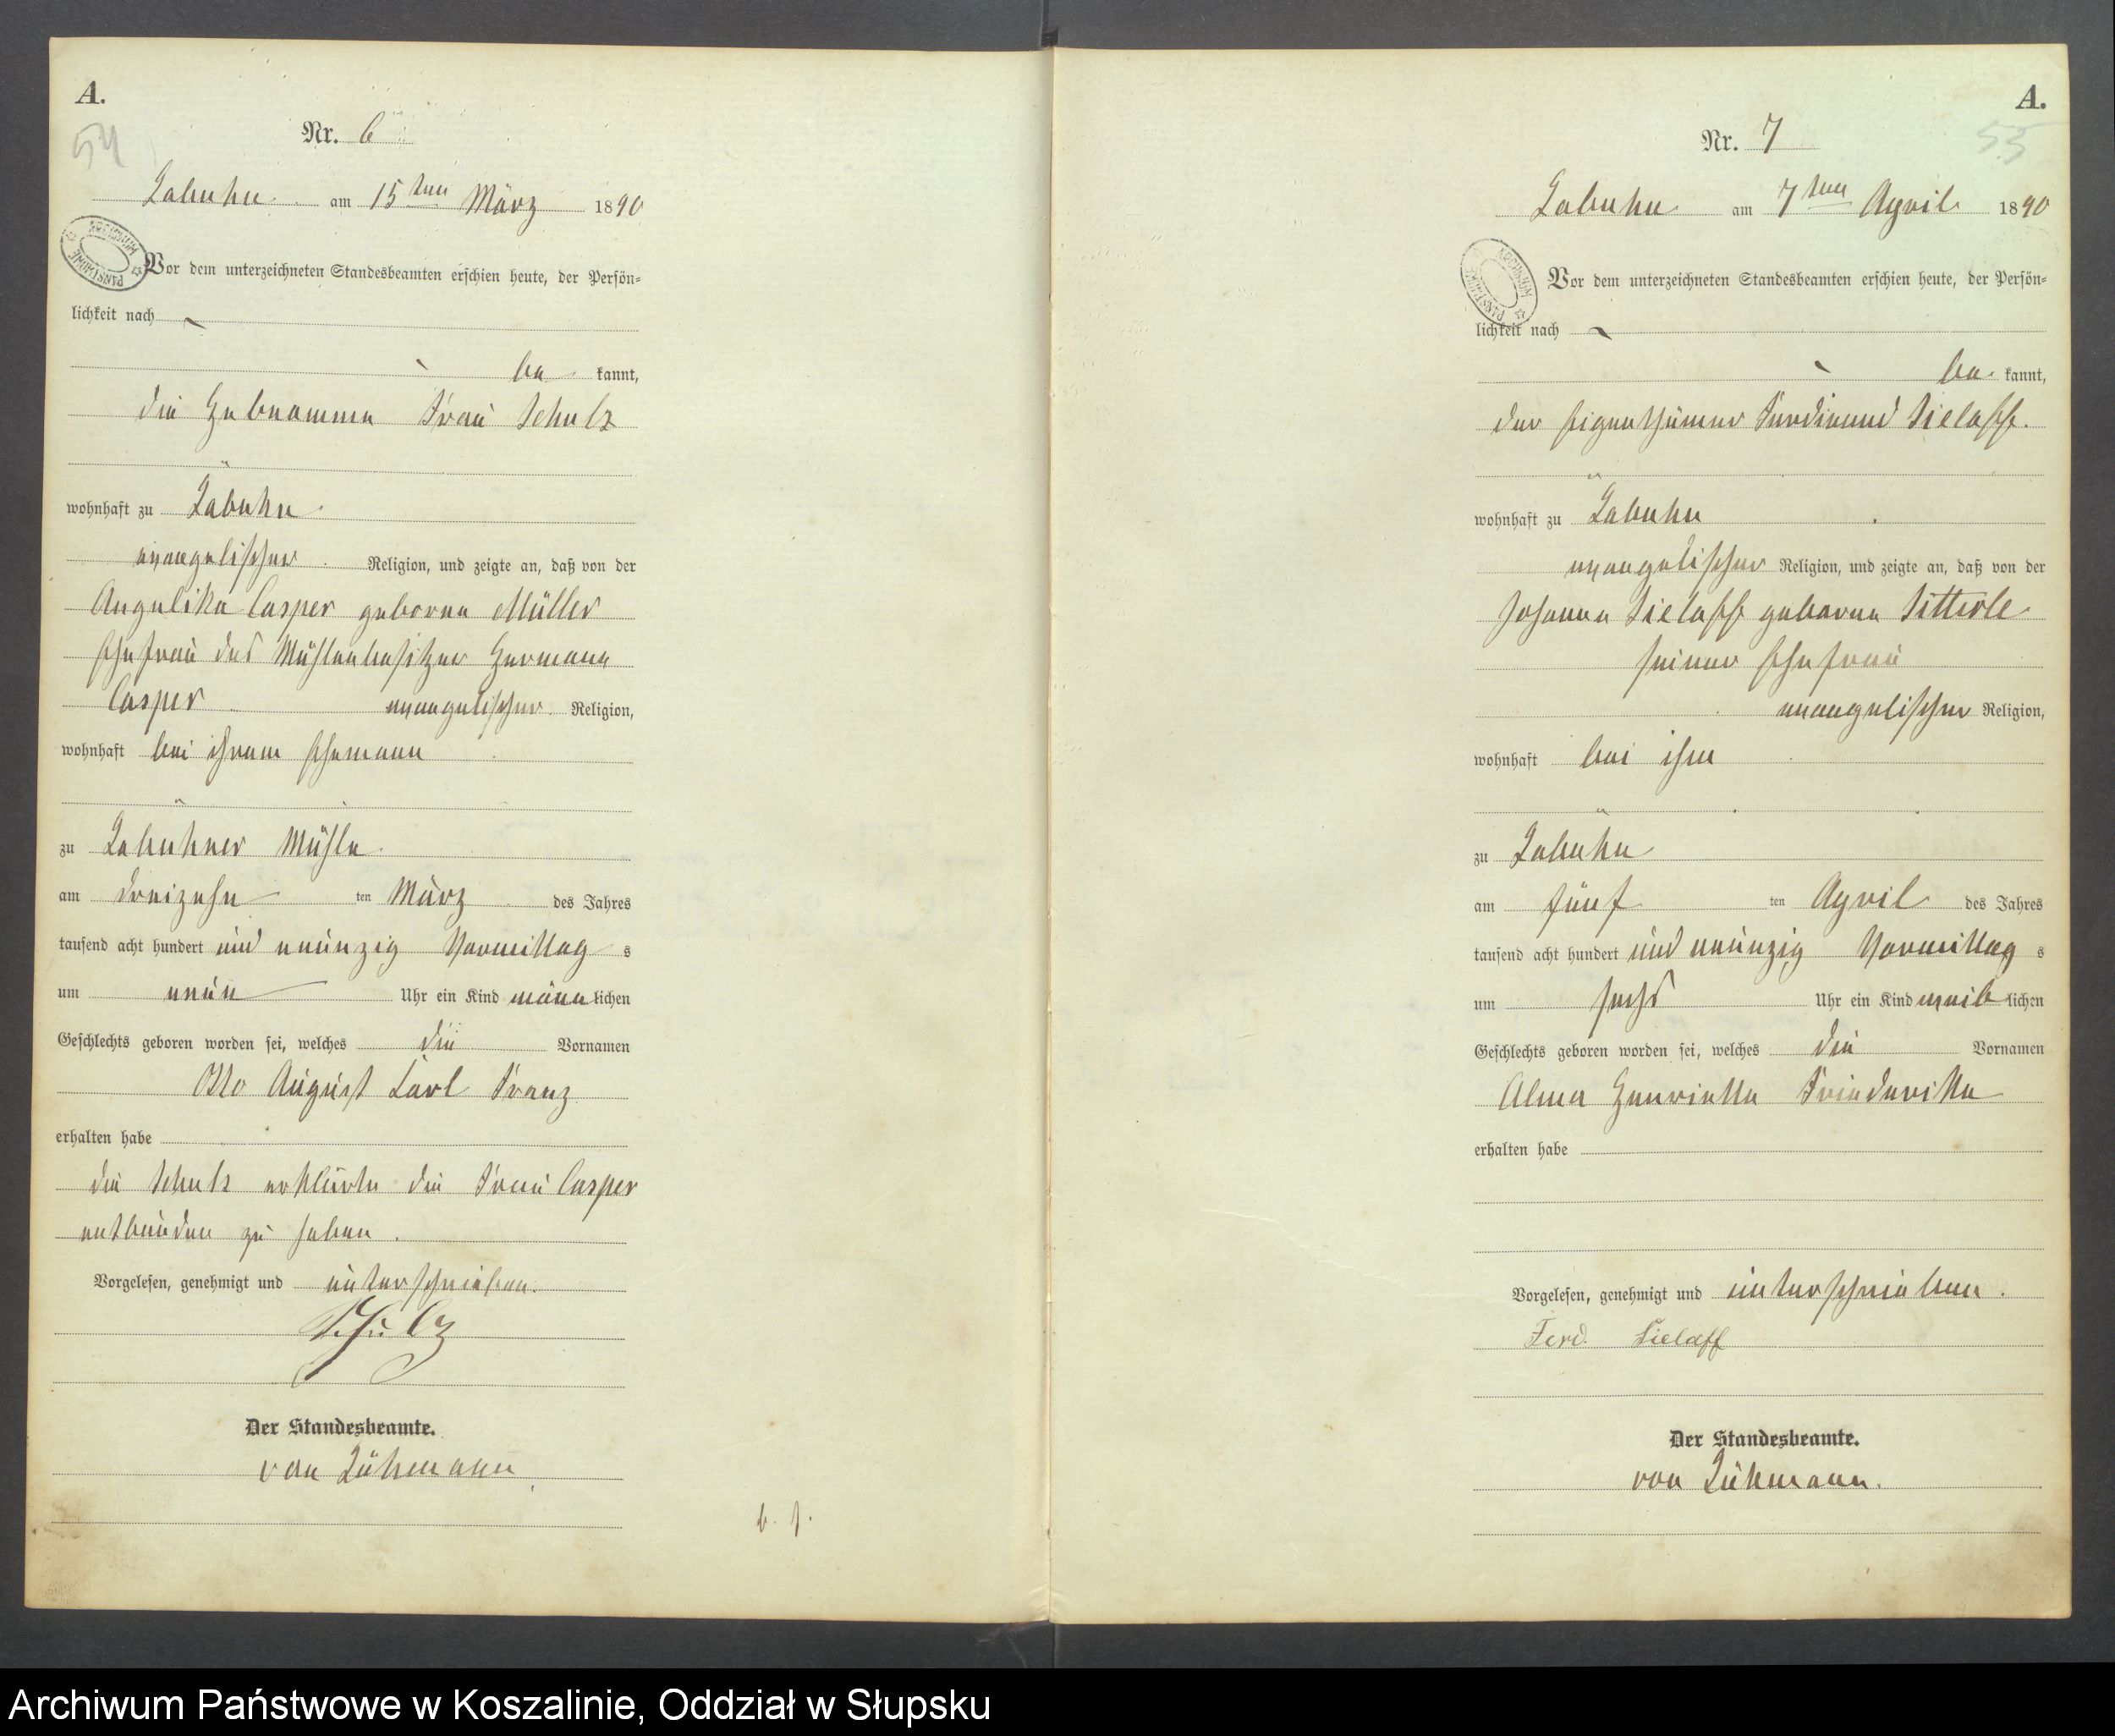 A.
54
Nr. 6
Labuhn am 15ten März 1890
Vor dem unterzeichneten Standesbeamten erschien heute, der Persön-
lichkeit nach
be kannt,
die Hebeamme Frau Schulz
wohnhaft zu Labuhn
evangelischer Religion, und zeigte an, daß von der
Angelika Casper geborne Müller
Ehefrau des Mühlenbesitzer Hermann
Casper evangelischer Religion,
wohnhaft bei ihrem Ehemann
zu Labuhner Mühle
am dreizehn ten März des Jahres
tausend acht hundert und neunzig Vormittag s
um neun Uhr ein Kind männlichen
Geschlechts geboren worden sei, welches die Vornamen
Otto August Carl Franz
erhalten habe
die Schulz erklärte die Frau Casper
entbunden zu haben.
Vorgelesen, genehmigt und unterschrieben.
Schulz
Der Standesbeamte.
von Lühmann
A.
55
Nr. 7
Labuhn am 7ten April 1890
Vor dem unterzeichneten Standesbeamten erschien heute, der Persön-
lichkeit nach
be kannt,
der Eigenthümer Ferdinand Sielaff.
wohnhaft zu Labuhn
evangelischer Religion, und zeigte an, daß von der
Johanna Sielaff geborne
seiner Ehefrau
evangelischer Religion,
wohnhaft bei ihm
zu Labuhn
am fünf ten April des Jahres
tausend acht hundert und neunzig Vormittag s
um sechs Uhr ein Kind weiblichen
Geschlechts geboren worden sei, welches die Vornamen
Alma Henriette Friederike
erhalten habe
Vorgelesen, genehmigt und unterschrieben.
Ferd. Sielaff
Der Standesbeamte.
von Lühmann.
Archiwum Państwowe w Koszalinie, Oddział w Słupsku